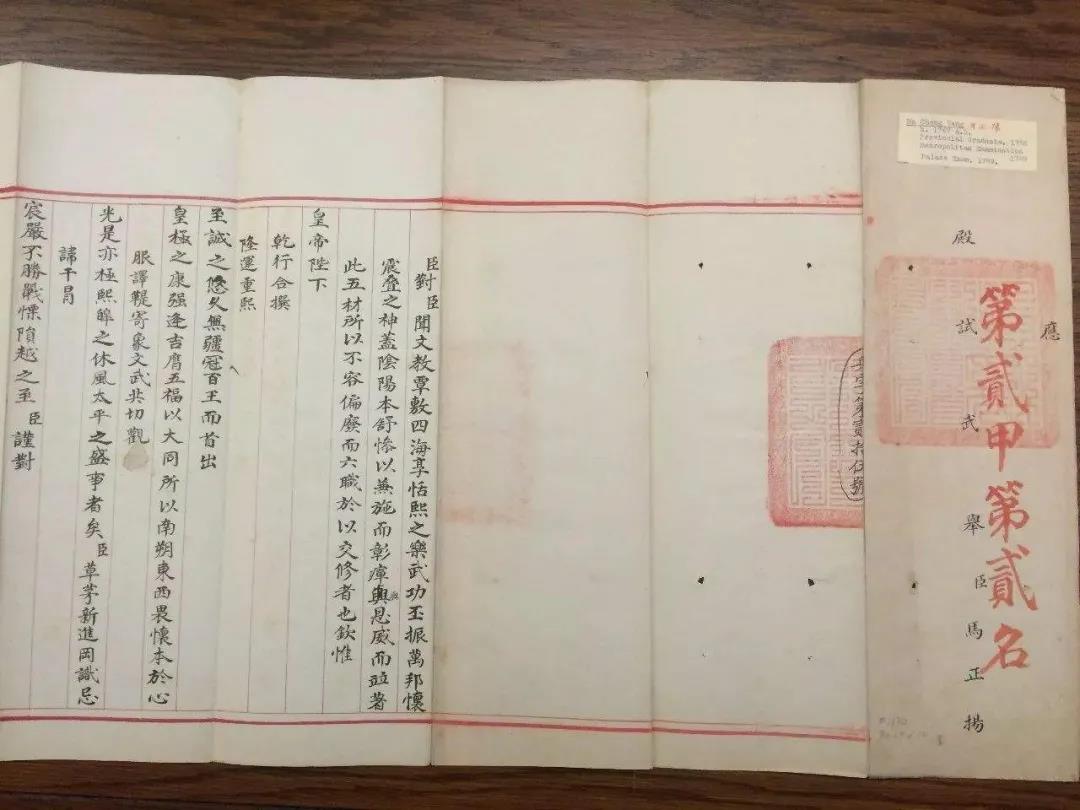 Ma Cheng Yang 馬正揚
Provincial Graduate, 1788
Metropolitan Examination 1789
Palace Exam. 1789.
應
殿試武舉臣馬正揚
第貳甲第貳名
字第貳拾伍號
臣對臣聞文教覃敷四海享恬熙之樂武功丕振萬邦懷
震叠之神蓋陰陽本舒慘以兼施而彰癉與恩威而竝著
此五材所以不容偏廢而六職於以交修者也欽惟
皇帝陛下
乾行合撰
隆運重熙
至誠之悠久無疆冠百王而首出
皇極之康强逢吉膺五福以大同所以南朔東西畏懷本於心
服譯鞮寄象文武共切觀
光是亦極熙皞之休風太平之盛事者矣臣草茅新進罔識忌
諱干冒
宸嚴不勝戰慄隕越之至臣謹對